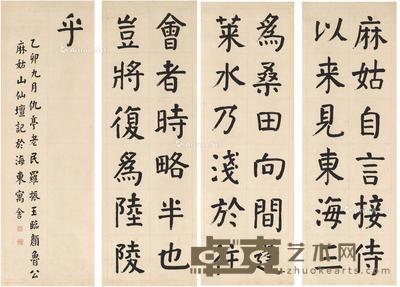 麻姑自言接侍
以来見東海三
爲桑田向間蓬
萊水乃淺於往
會者時略半也
豈將復爲陸陵
乎
乙卯九月仇亭老民羅振玉臨顏魯公
麻姑山仙壇記於海東寓舍
卓克艺术网